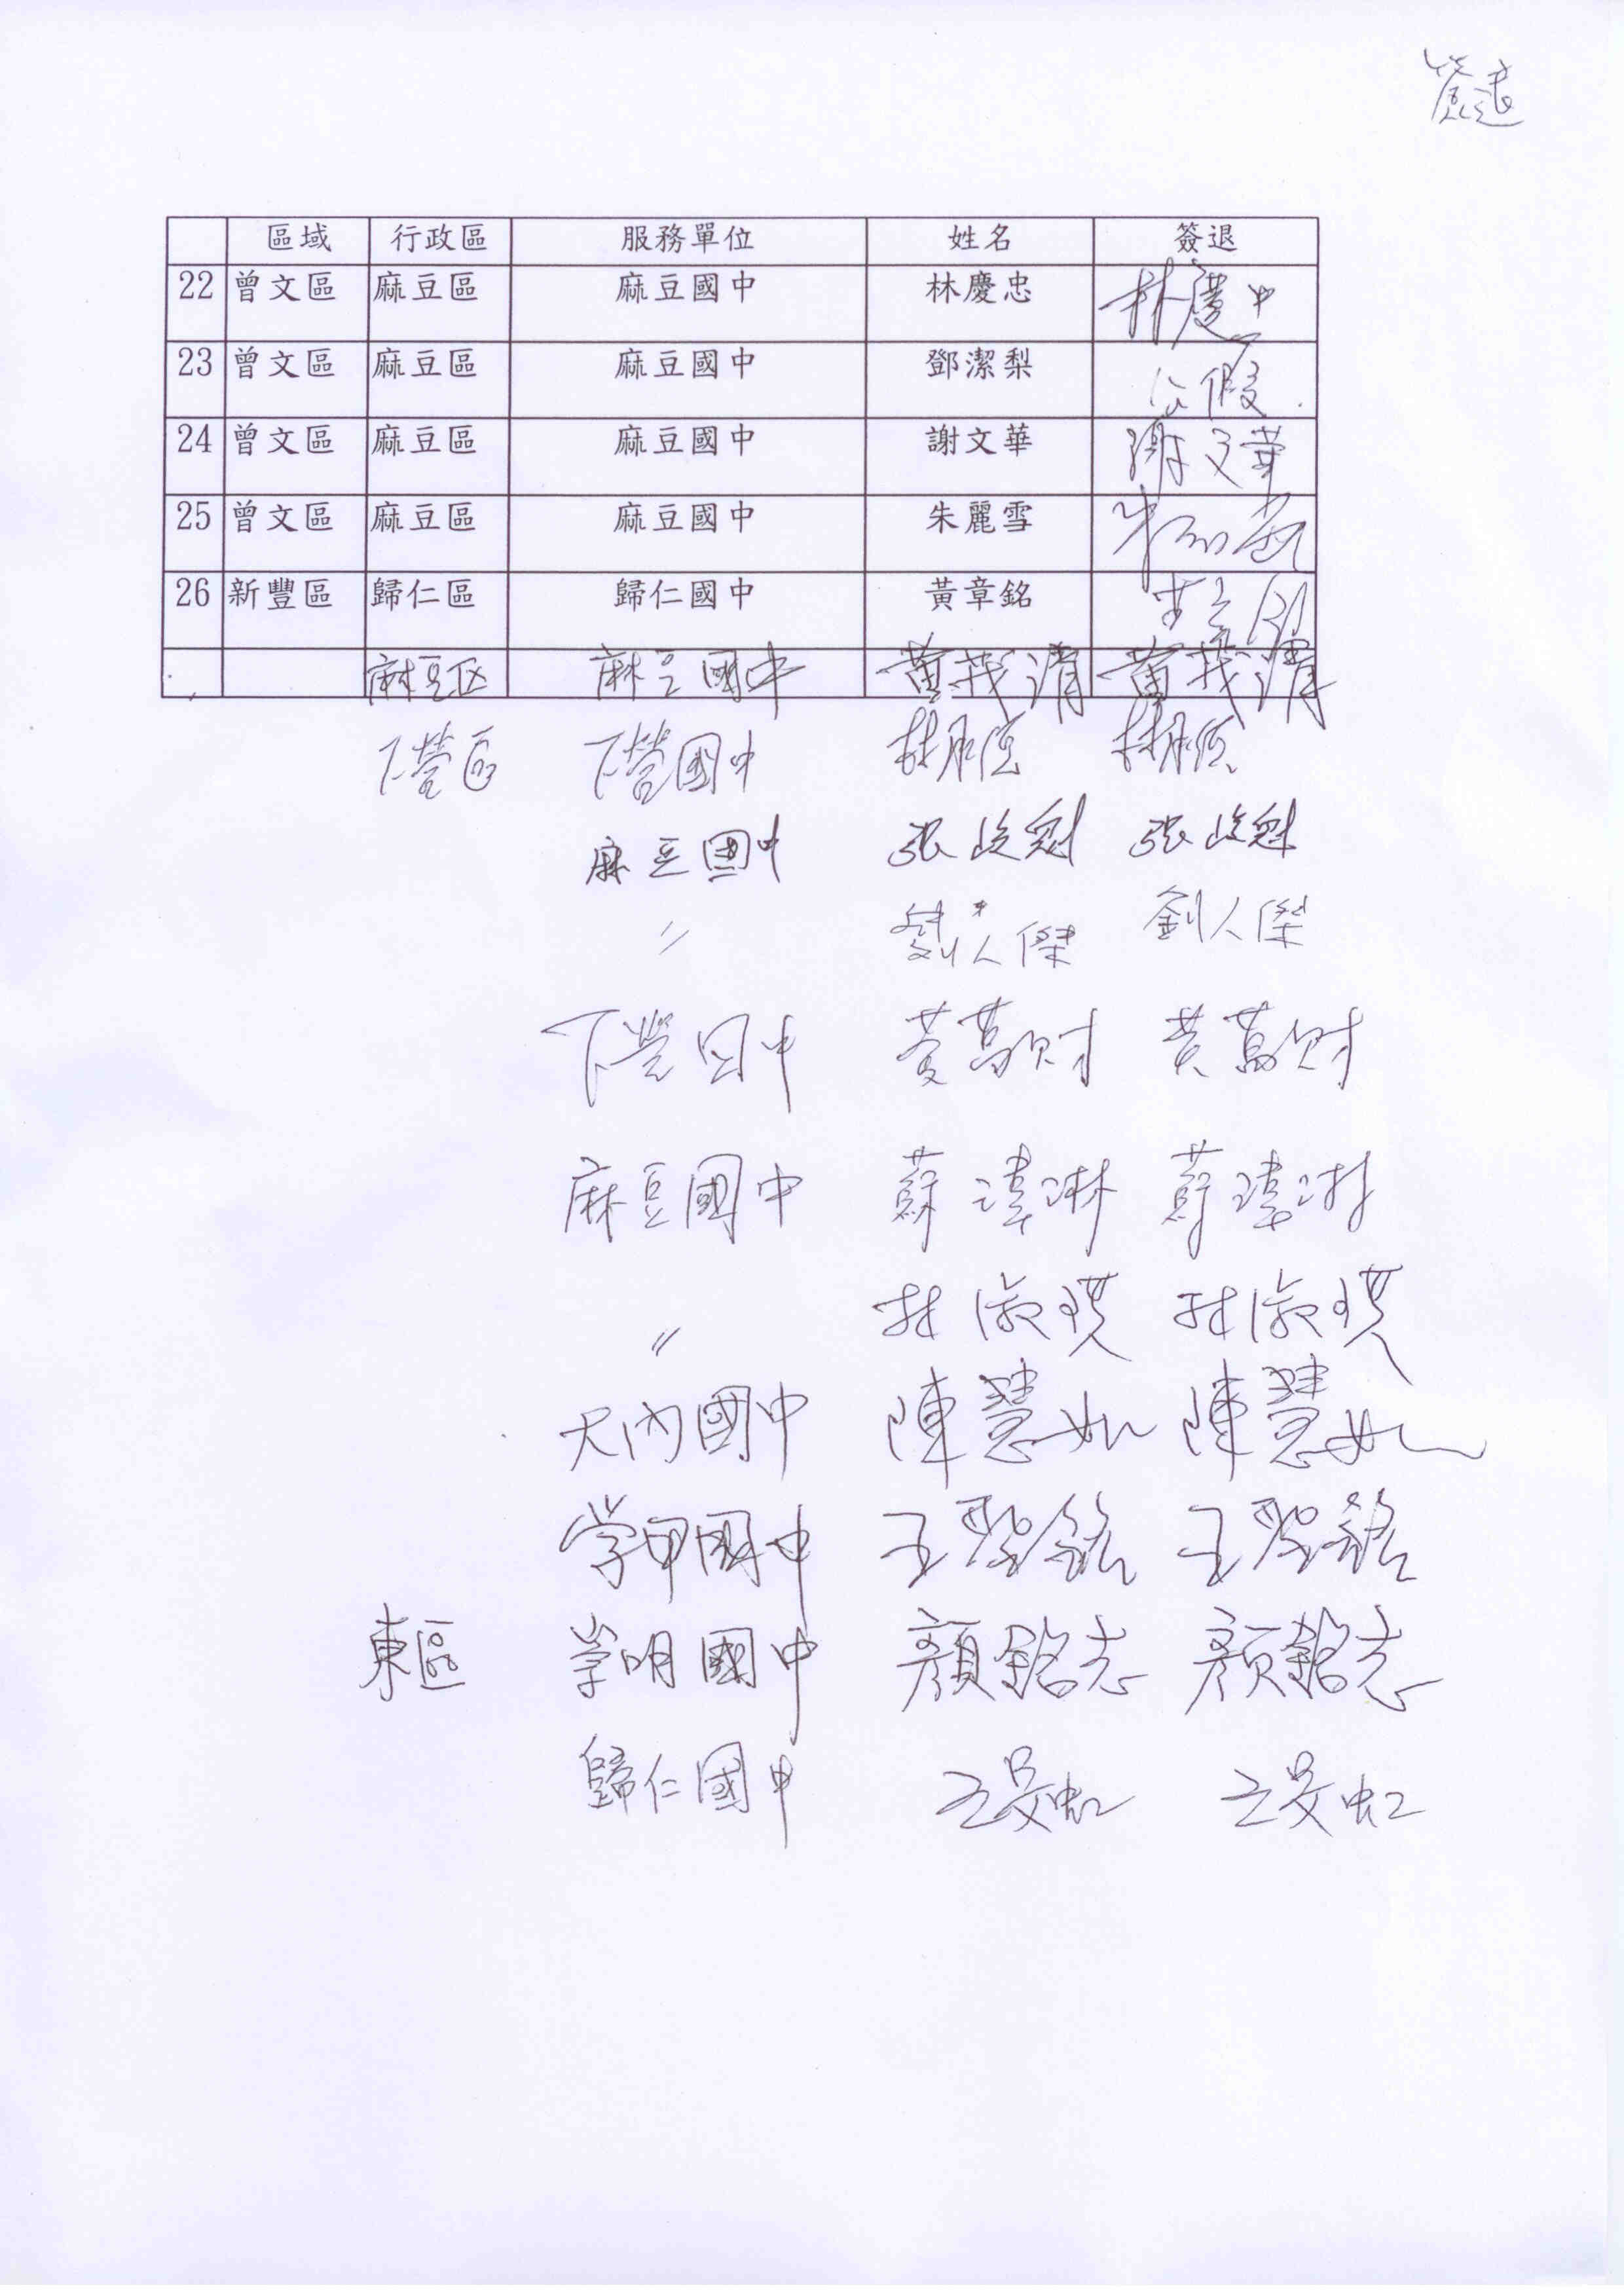 簽退
區域 行政區 服務單位 姓名 簽退
22 曾文區 麻豆區 麻豆國中 林慶忠 林慶中
23 曾文區 麻豆區 麻豆國中 鄧潔梨 公假
24 曾文區 麻豆區 麻豆國中 謝文華 謝文華
25 曾文區 麻豆區 麻豆國中 朱麗雪
26 新豐區 歸仁區 歸仁國中 黃章銘
麻豆区 麻豆國中
下營區 下營國中
麻豆國中 張
〃 劉人傑 劉人傑
下營国中 黃萬財 黃萬財
麻豆國中 蘇瑋琳 蘇瑋琳
〃 林淑琪 林淑琪
大內國中 陳慧如 陳慧如
学甲國中 王聖銘 王聖銘
東區 崇明國中 顏銘志 顏銘志
歸仁國中 王旻虹 王旻虹